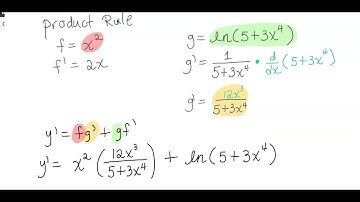 product Rule
f = x²
f' = 2x
g = ln(5+3x⁴)
g' = 1/(5+3x⁴) • d/dx (5+3x⁴)
g' = 12x³/(5+3x⁴)
y' = fg' + gf'
y' = x² (12x³/(5+3x⁴)) + ln(5+3x⁴)